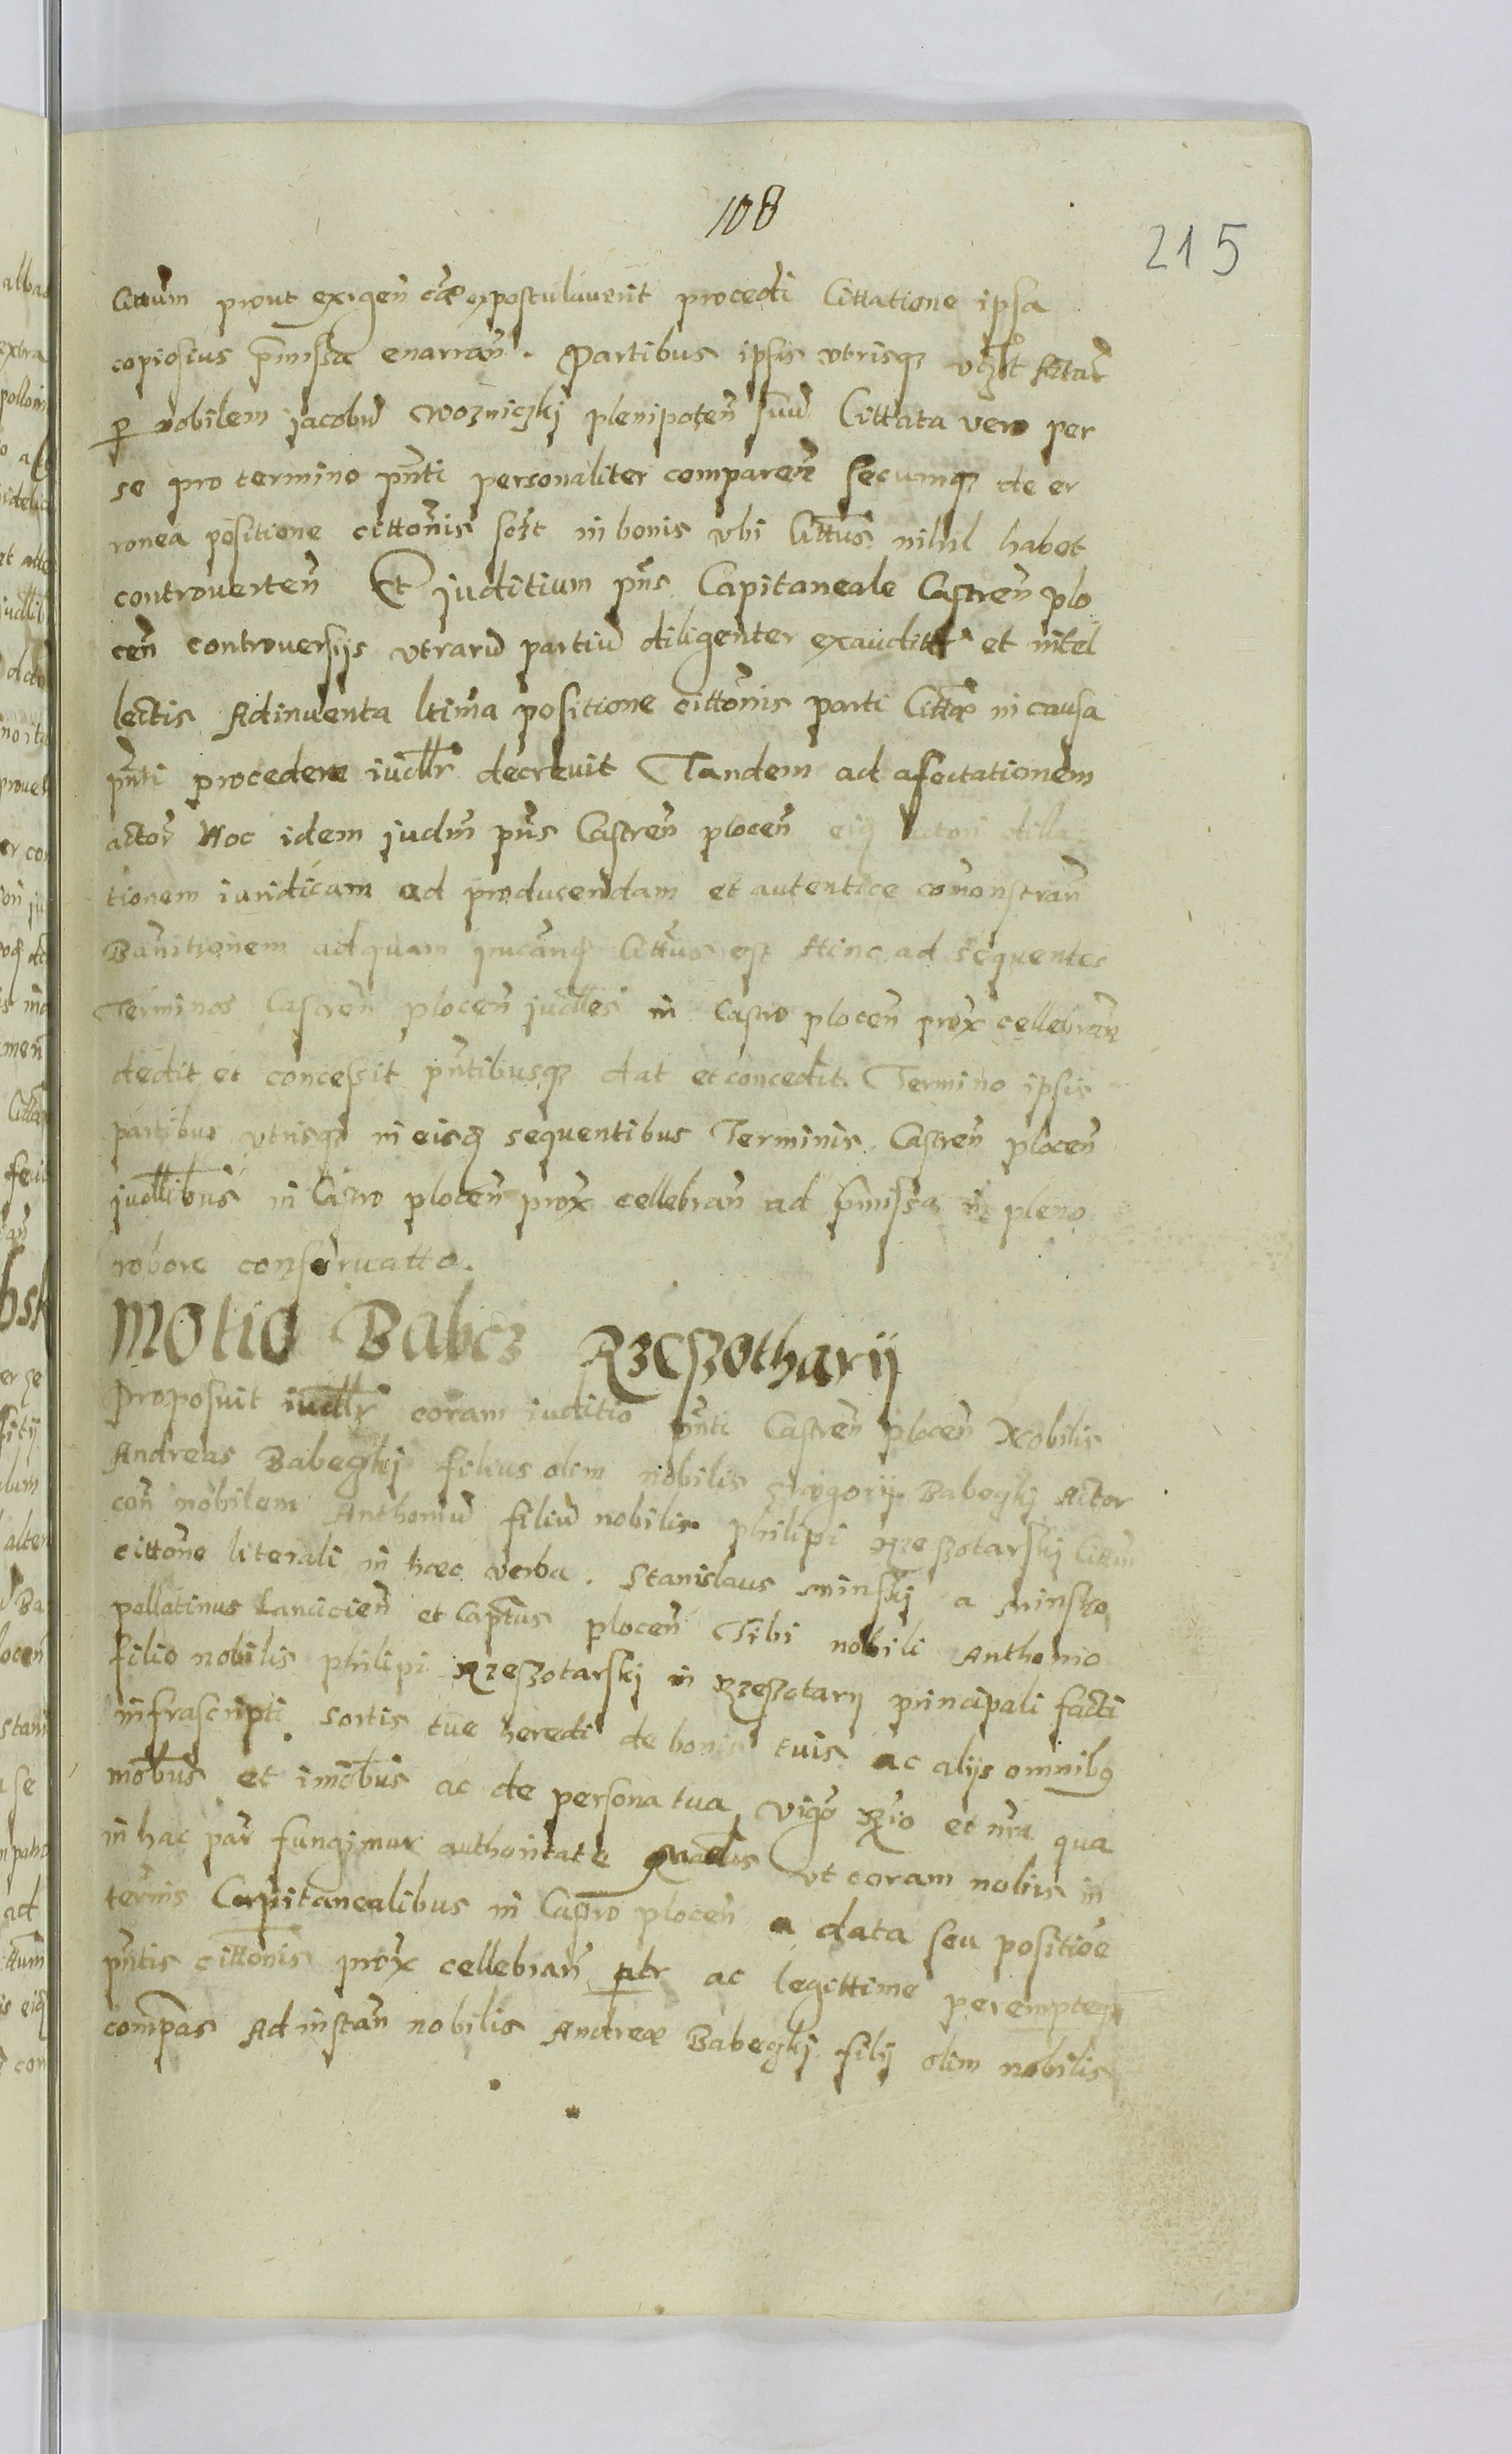 108
215
Cittum prout exigen cæ expostulauerit procedi Cittatione ipsa
copiosius p̄missa enarran̄. Partibus ipsis vtrisq
ꝑ nobilem jacobū Wozniczkj plenipoten̄ suū Cittata vero per
se pro termino pn̄ti personaliter comparen̄ secumq de er
ronea positione cittōnis sczt in bonis vbi Cittus nihil habet
controuerten̄ Et juditium pn̄s Capitaneale Castren̄ plo
cen̄ controuersijs vtrarū partiū diligenter exauditis et intel
lectis Adinuenta ltima positione cittōnis parti Cittæ in causa
pn̄ti procedere iudllr decreuit Tandem ad afectationem
actor Hoc idem judm̄ pn̄s Castren̄ plocen̄ eiq actori dilla
tionem iuridicam ad producendam et autentice comonstran̄
Banitionem ad quam Cittus est Hinc ad sequentes
Terminos Castren̄ plocen̄ judlles in Castro plocen̄ prox cellebran̄
dedit et concessit pn̄tibusq dat et concedit. Termino ipsis
partibus vtrisq in eisq sequentibus Terminis Castren̄ plocen̄
judllibus in Castro plocen̄ prox cellebran̄ ad p̄missa in pleno
robore conseruatto.
Motio Babcz Rzeszotharij
Proposuit iudllr coram iuditio pn̄ti Castren̄ plocen̄ Nobilis
Andreas Babeczkj filius olim nobilis Grægorij Babeczkj Actor
con̄ nobilem Anthoniū filiū nobilis philipi Rzeszotarskj Cittum
cittōne literali in hæc verba. Stanislaus Minskj a Minsko
pallatinus Lancicien̄ et Captus plocen̄ Tibi nobili Anthonio
filio nobilis philipi Rzeszotarskj in Rzeszotary principali facti
infrascripti sortis tue heredi de bonis tuis ac alijs omnibq
mōbus et imōbus ac de persona tua vigo Rio et nra qua
in hac par fungimur authoritate Mādus vt coram nobis in
termis Capitanealibus in Castro plocen̄ a data seu positiōe
pn̄tis cittōnis prox cellebran̄ ptr ac legittime
compas Ad instan̄ nobilis Andreæ Babeczkj filij olim nobilis